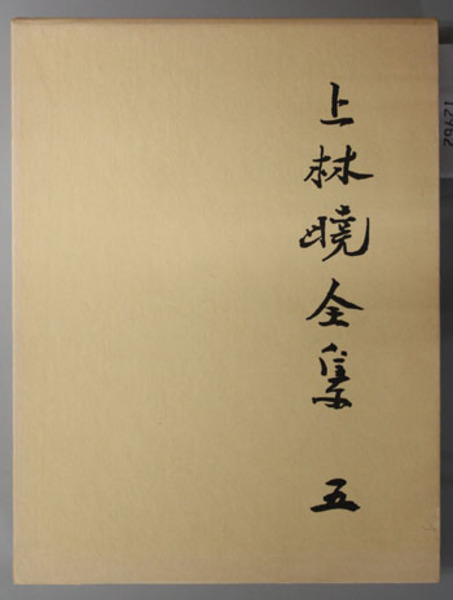 上林暁全集 五
12962